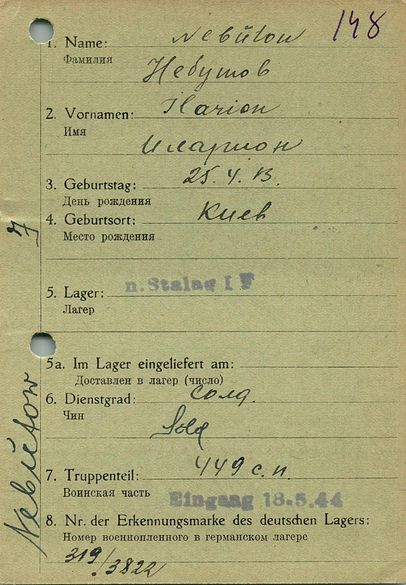 148
1. Name: Nebütow
Фамилия
Небутов
2. Vornamen: Ilarion
Имя
Иларион
3. Geburtstag: 25.4.13.
День рождения
4. Geburtsort: Киев
Место рождения
5. Lager: n. Stalag I F
Лагер
5a. Im Lager eingeliefert am:
Доставлен в лагер (число)
6. Dienstgrad: солд.
Чин
Sold
7. Truppenteil: 449 с.п.
Воинская часть
Eingang 18.5.44
8. Nr. der Erkennungsmarke des deutschen Lagers:
Номер военнопленного в германском лагере
319/3822
Nebütow